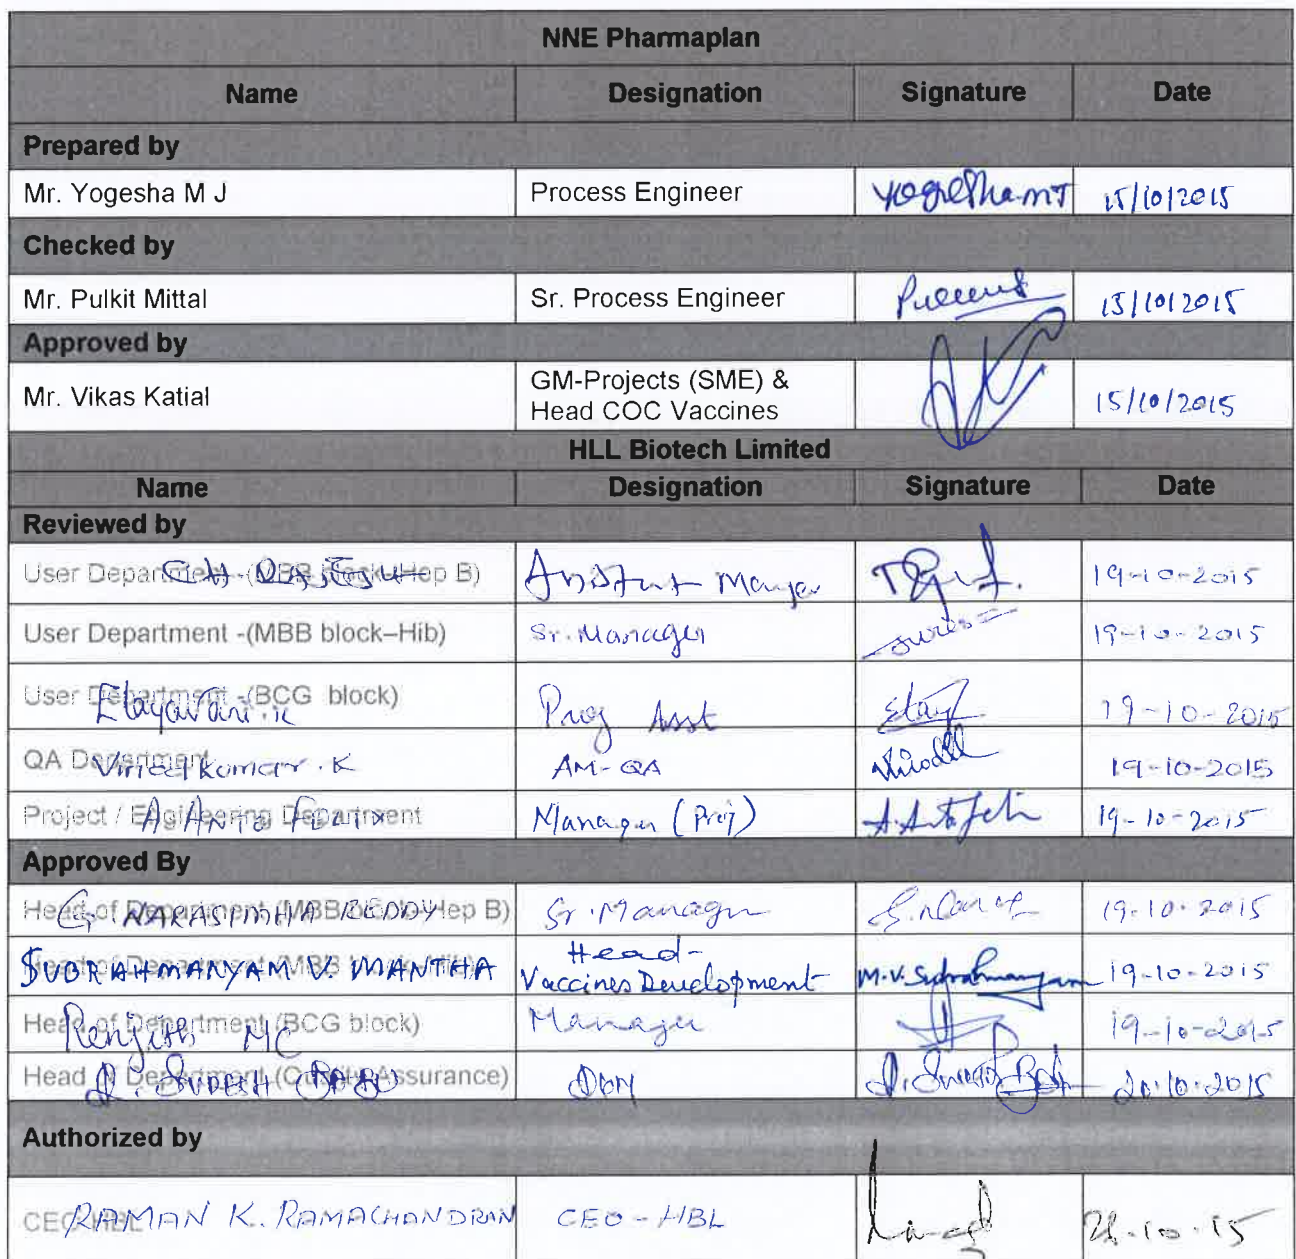 NNE Pharmaplan
Name Designation Signature Date
Prepared by
Mr. Yogesha M J Process Engineer YogeshaMJ 15/10/2015
Checked by
Mr. Pulkit Mittal Sr. Process Engineer 15/10/2015
Approved by
Mr. Vikas Katial GM-Projects (SME) & Head COC Vaccines 15/10/2015
HLL Biotech Limited
Name Designation Signature Date
Reviewed by
User Department -(MBB block–Hep B) 19-10-2015
User Department -(MBB block–Hib) Sr. Manager 19-10-2015
User Department -(BCG block) Elayavani.K Proj Asst 19-10-2015
QA Department Vinodkumar.K AM-QA 19-10-2015
Project / Engineering Department A Anto Felix Manager (Proj) 19-10-2015
Approved By
Head of Department (MBB block–Hep B) G. NARASIMHA REDDY Sr. Manager 19.10.2015
Head of Department (MBB SUBRAHMANYAM V. MANTHA Head-Vaccines Development M.V. Subrahmanyam 19-10-2015
Head of Department (BCG block) Renjith MC Manager 19-10-2015
Head of Department (Quality Assurance) DGM 20.10.2015
Authorized by
CEO-HBL RAMAN K. RAMACHANDRAN CEO-HBL 28.10.15